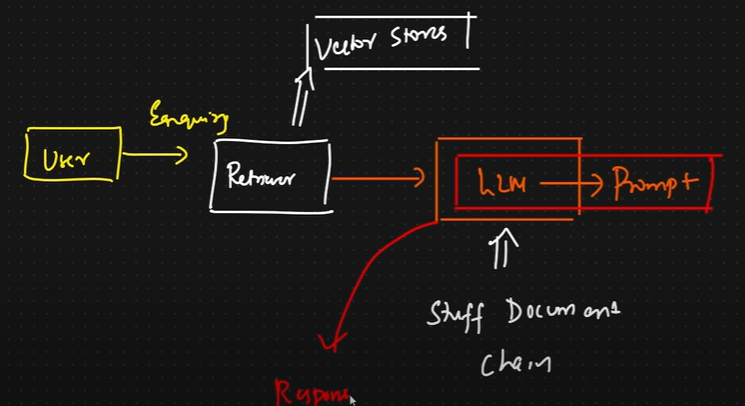 Vector Stores
Enquiry
User
Retriever
LLM
Prompt
Stuff Document
Chain
Respons